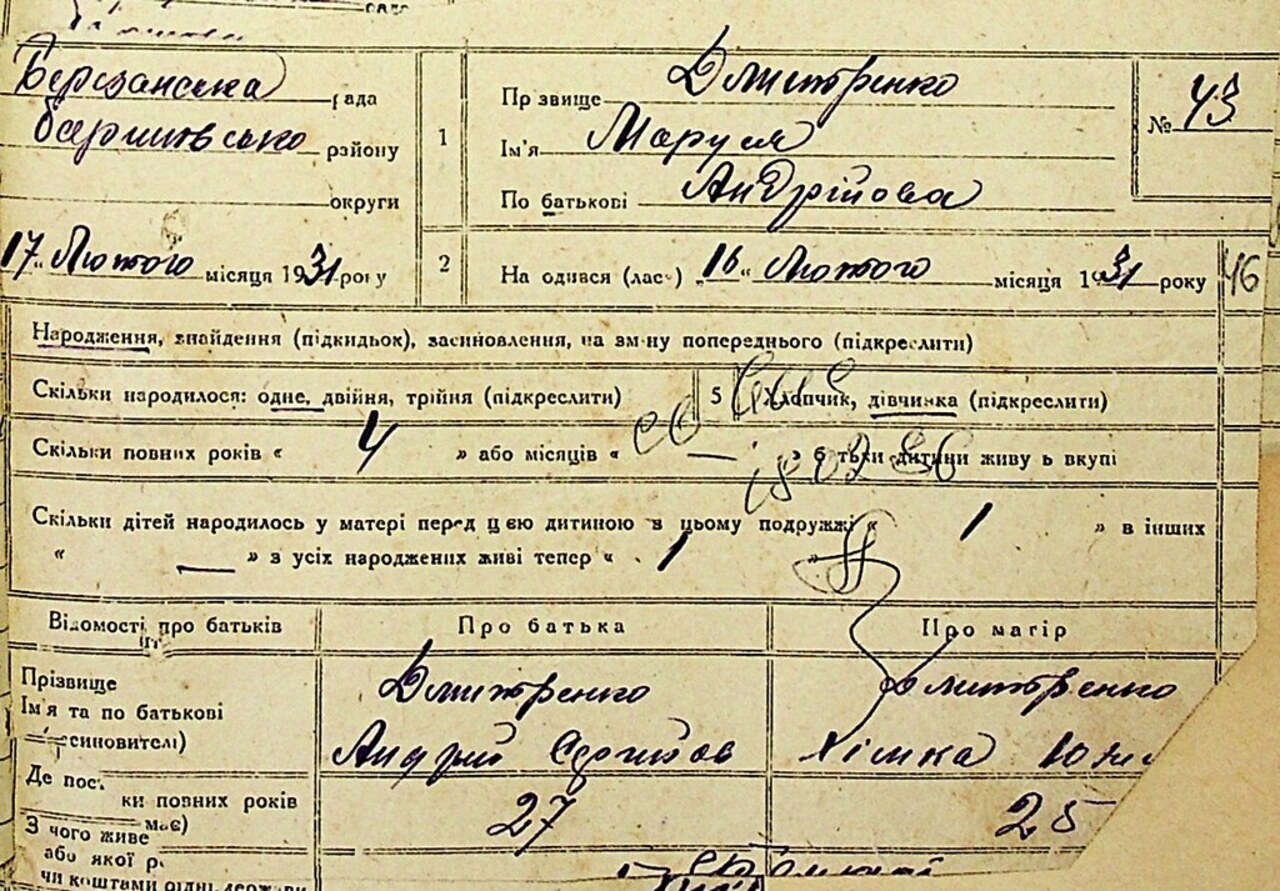 Березанська рада
району
округи
17 „ Лютого місяця 1931 року
1
Пр звище Дмитренко
Ім'я Маруся
По батькові Андрійова
№ 43
2
На одився (лась) „ 16 “ Лютого місяця 1931 року
46
Народження, знайдення (підкидьок), засиновлення, на зм ну попереднього (підкреслити)
Скільки народилося: одне, двійня, трійня (підкреслити)
5 Хлопчик, дівчинка (підкреслити)
Скільки повних років « 4 » або місяців « — » б тьки дитини живу ь вкупі
Скільки дітей народилось у матері перед цією дитиною в цьому подружжі « 1 » в інших
« — » з усіх народжених живі тепер « 1 »
Відомості про батьків
Про батька
Про матір
Прізвище
Ім'я та по батькові
синовителі)
Дмитренко
Андрій
Дмитренко
Хімка
Де пос
ки повних років
має)
27
25
З чого живе
або якої р
чи коштами рідні, держави